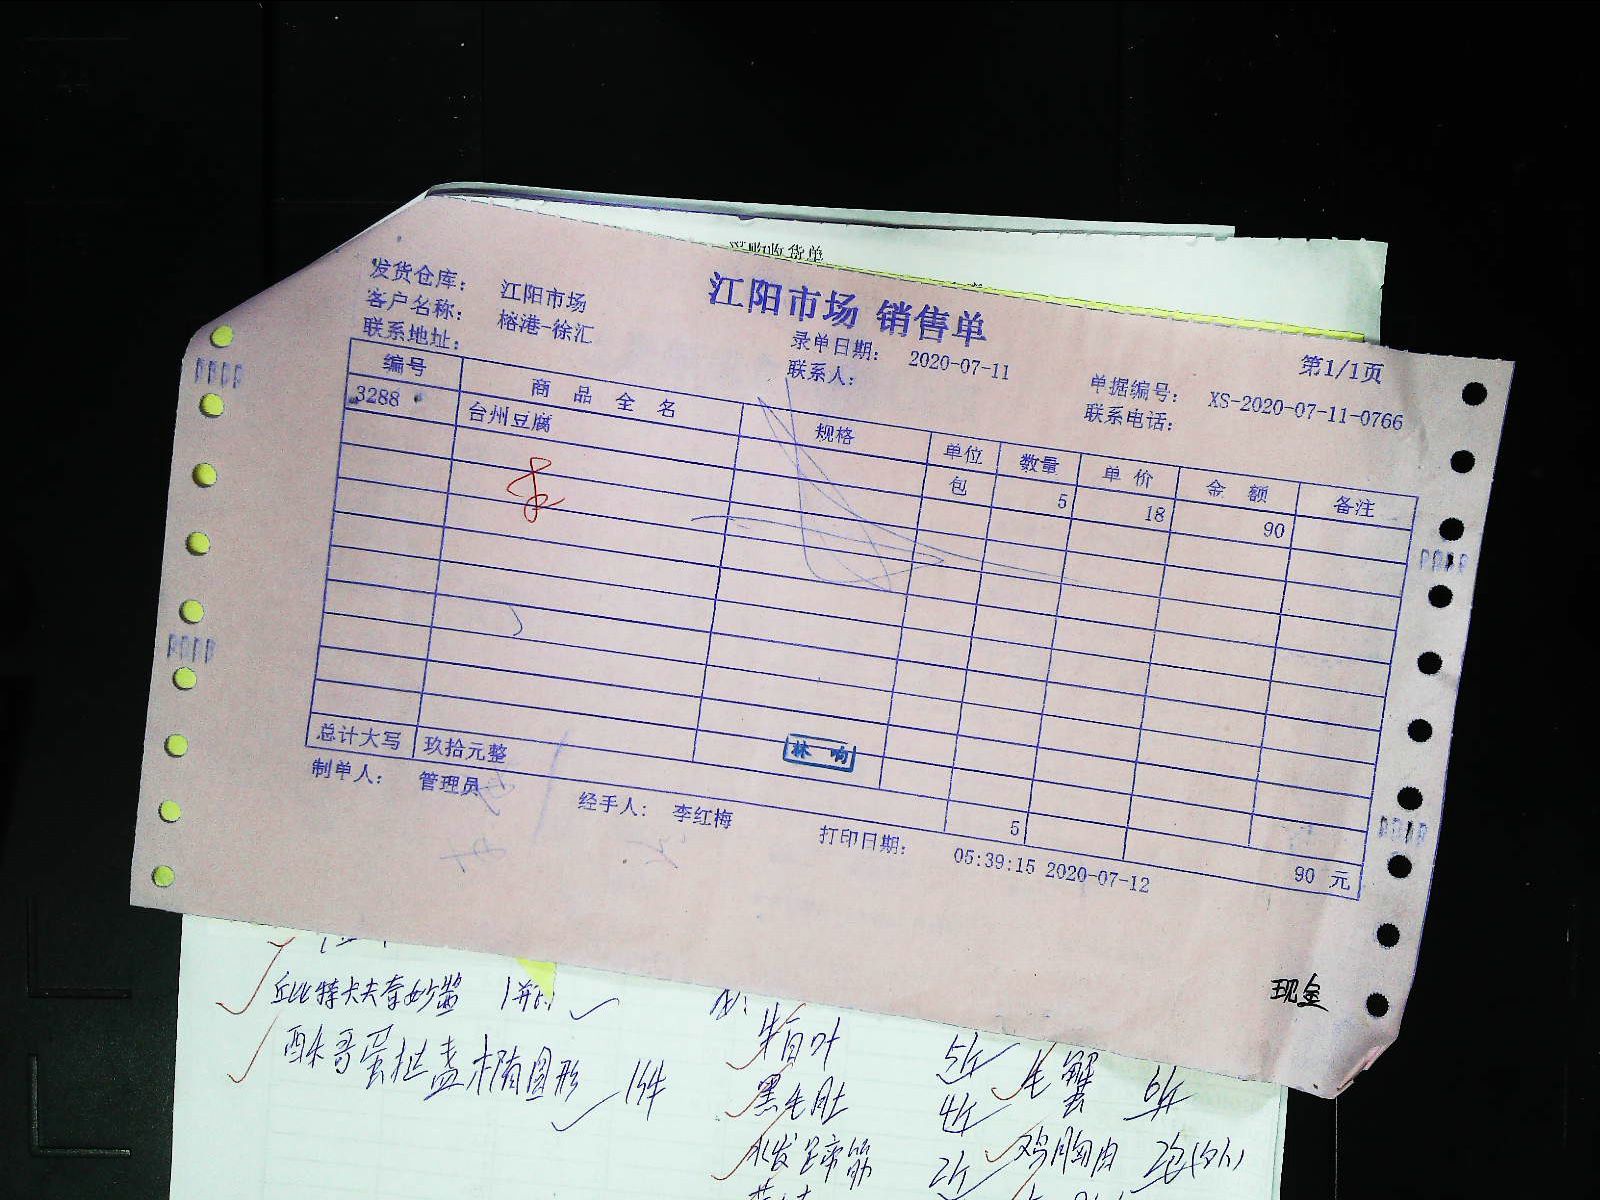 购收货单
江阳市场 销售单
第1/1页
发货仓库： 江阳市场
客户名称： 榕港-徐汇 录单日期： 2020-07-11 单据编号： XS-2020-07-11-0766
联系地址： 联系人： 联系电话：
编号 商品全名 规格 单位 数量 单价 金额 备注
3288 台州豆腐 包 5 18 90
总计大写 玖拾元整 5 90 元
林 响
制单人： 管理员 经手人： 李红梅 打印日期： 05:39:15 2020-07-12
现金
丘比特卡夫奇妙酱 1瓶
牛百叶 5斤 毛蟹 6斤
黑毛肚 4斤
水发蹄筋 2斤 鸡胸肉
椭圆形 1件